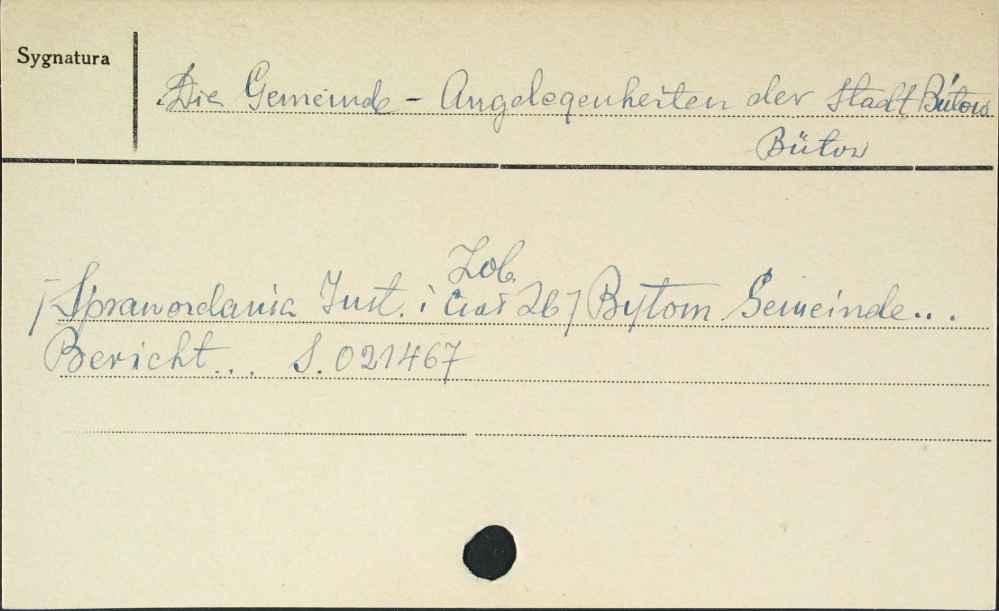 Sygnatura
Die Gemeinde - Angelegenheiten der Stadt Bütow
Bütow
Zob.
/Sprawozdania Inst. i Ciał 26/ Bytom Gemeinde...
Bericht... S. 021467